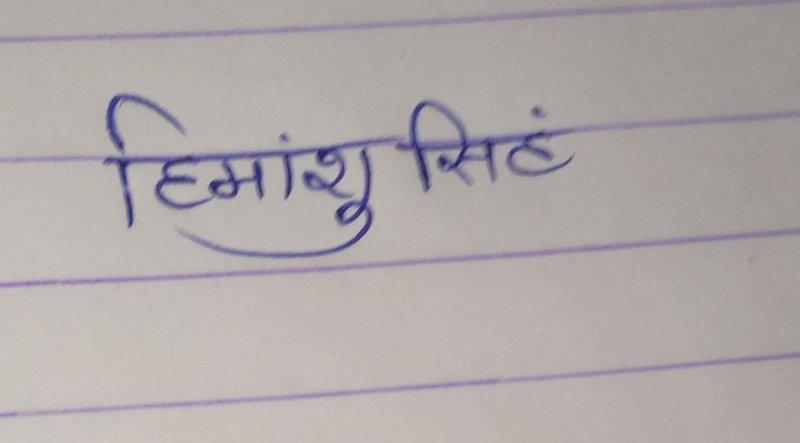 हिमांशु सिहं